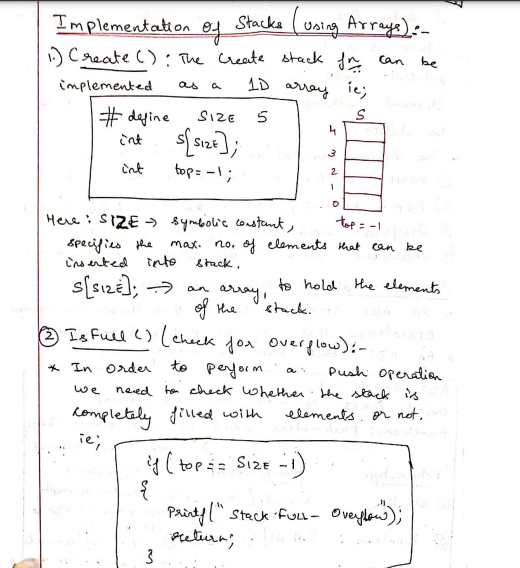 Implementation of Stacks (using Arrays):-
1.) Create () : The create stack fn can be
implemented as a 1D array ie;
# define SIZE 5
int S[SIZE];
int top = -1;
S
4
3
2
1
0
top = -1
Here : SIZE → symbolic constant,
specifies the max. no. of elements that can be
inserted into stack.
S[SIZE]; → an array, to hold the elements
of the stack.
② IsFull () (check for overflow):-
* In order to perform a push operation
we need to check whether the stack is
completely filled with elements or not.
ie;
if (top == SIZE -1)
{
printf(" Stack FULL - Overflow");
return;
}